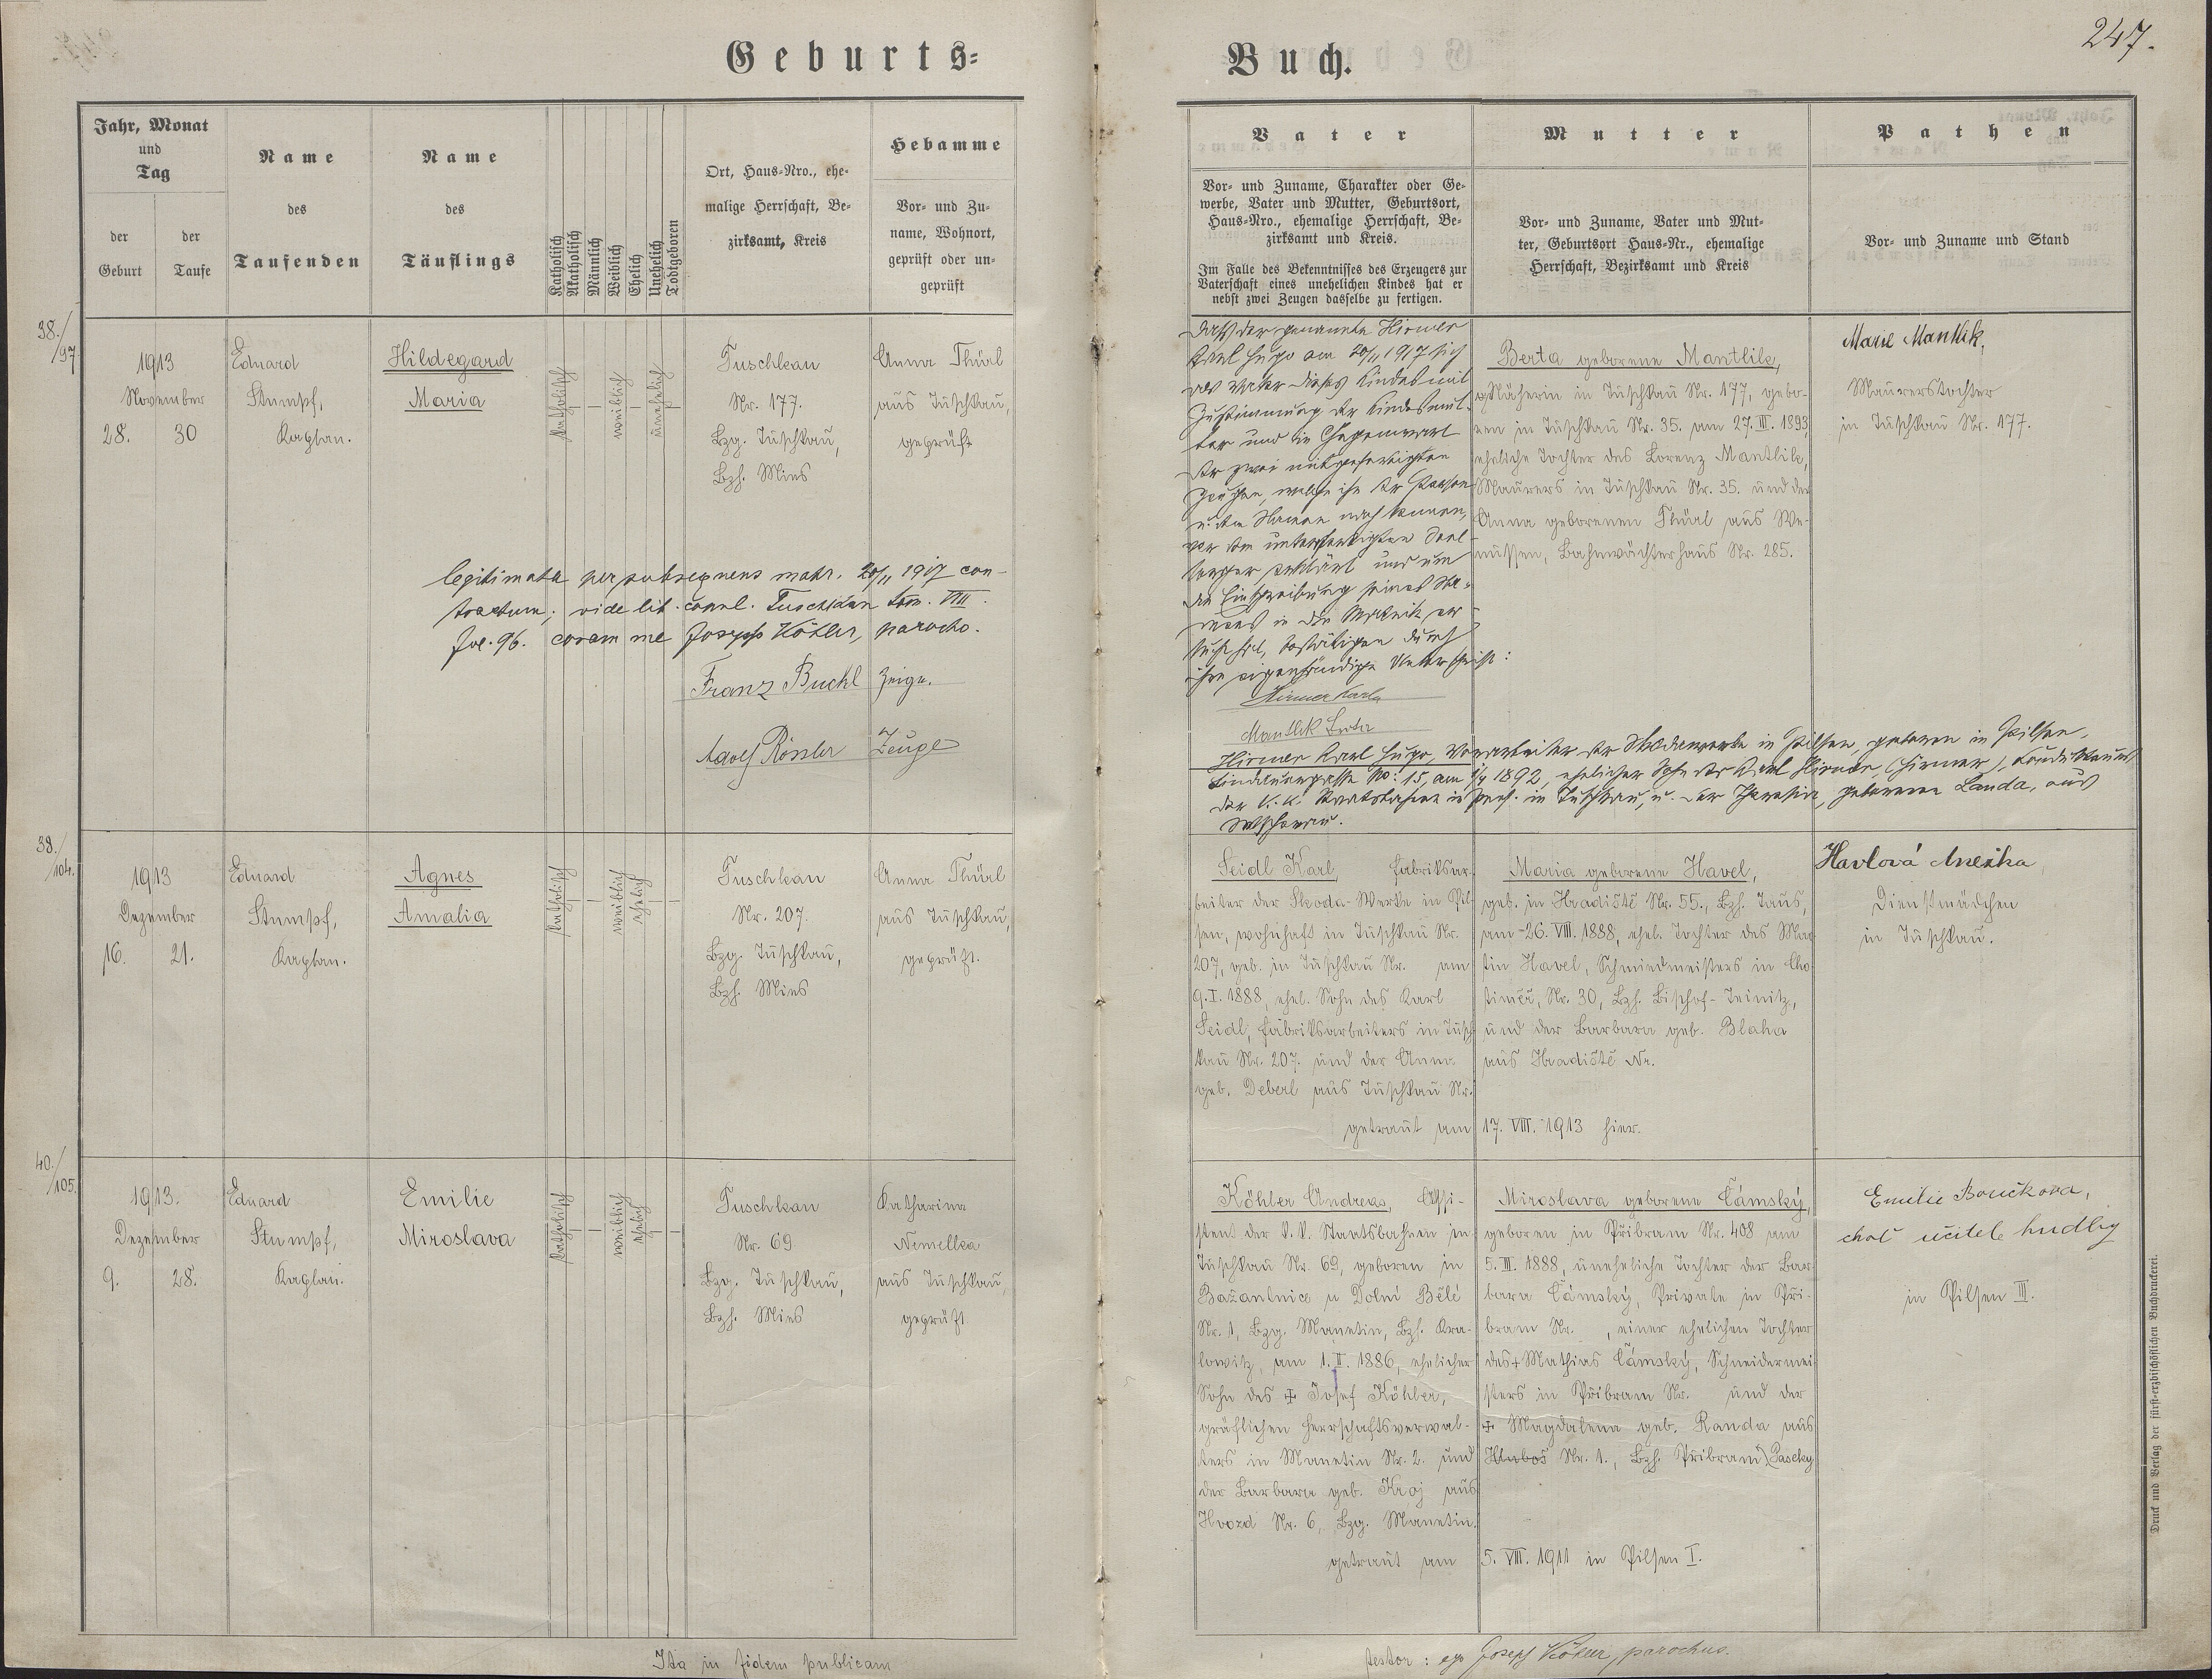 Geburts-
Buch.
247.
Jahr, Monat
und
Tag
der
Geburt
der
Taufe
Name
des
Taufenden
Name
des
Täuflings
Katholisch
Akatholisch
Männlich
Weiblich
Ehelich
Unehelich
Todtgeboren
Ort, Haus-Nro., ehe-
malige Herrschaft, Be-
zirksamt, Kreis
Hebamme
Vor- und Zu-
name, Wohnort,
geprüft oder un-
geprüft
Vater
Vor- und Zuname, Charakter oder Ge-
werbe, Vater und Mutter, Geburtsort,
Haus-Nro., ehemalige Herrschaft, Be-
zirksamt und Kreis.
Im Falle des Bekenntnisses des Erzeugers zur
Vaterschaft eines unehelichen Kindes hat er
nebst zwei Zeugen dasselbe zu fertigen.
Mutter
Vor- und Zuname, Vater und Mut-
ter, Geburtsort Haus-Nr., ehemalige
Herrschaft, Bezirksamt und Kreis
Pathen
Vor- und Zuname und Stand
38./97
1913
November
28. 30
Eduard
Stumpf,
Kaplan.
Hildegard
Maria
katholisch
weiblich
unehelich
Tuschkau
Nr. 177.
Bzg. Tuschkau,
Bzh. Mies
Anna Thürl
aus Tuschkau,
geprüft
legitimata per subsequens matr. 20/11 1917 con-
tractum; vide lib. copul. Tuschkau tom. VIII.
fol. 96. coram me Joseph Köhler, parocho.
Franz Buchl Zeuge.
Adolf Rössler Zeuge
Daß der genannte Hirmer
Karl Hugo am 20/11 1917 sich
als Vater dieses Kindes mit
Zustimmung der Kindesmut-
ter und in Gegenwart
der zwei mitgefertigten
Zeugen, welche ihn der Person
u. dem Namen nach kennen,
vor dem unterfertigten Seel-
sorger erklärt und um
die Einschreibung seines Na-
mens in die Matrik er-
sucht hat, bestätigen durch
ihre eigenhändige Unterschrift:
Hirmer Karl
Mantlik Berta
Hirmer Karl Hugo, Vorarbeiter der Skodawerke in Pilsen, geboren in Pilsen,
No: 15, am 1892, ehelicher Sohn des Karl Hirmer, (Hirmer), Kondukteurs
der k. k. Staatsbahnen in Pens. in Tuschkau, u. der Theresia, geborenen Landa, aus
Berta geborene Mantlik,
Näherin in Tuschkau Nr. 177, gebo-
ren in Tuschkau Nr. 35. am 27. III. 1893,
eheliche Tochter des Lorenz Mantlik,
Maurers in Tuschkau Nr. 35. und der
Anna geborenen Thürl aus We-
nussen, Bahnwächterhaus Nr. 285.
Marie Mantlik,
Maurerstochter
in Tuschkau Nr. 177.
39./104.
1913
Dezember
16. 21.
Eduard
Stumpf,
Kaplan.
Agnes
Amalia
katholisch
weiblich
ehelich
Tuschkau
Nr. 207.
Bzg. Tuschkau,
Bzh. Mies
Anna Thürl
aus Tuschkau,
geprüft.
Seidl Karl, Fabriksar-
beiter der Skoda-Werke in Pil-
sen, wohnhaft in Tuschkau Nr.
207, geb. in Tuschkau Nr. am
9. I. 1888, ehel. Sohn des Karl
Seidl, Fabriksarbeiters in Tusch-
kau Nr. 207. und der Anna
geb. Deberl aus Tuschkau Nr.
getraut am 17. VIII. 1913 hier.
Maria geborene Havel,
geb. in Hradiště Nr. 55., Bzh. Taus,
am 26. VIII. 1888, ehel. Tochter des Mar-
tin Havel, Schmiedmeisters in Cho-
timěř, Nr. 30, Bzh. Bischof-Teinitz,
und der Barbara geb. Blaha
aus Hradiště Nr.
Havlová Anežka
Dienstmädchen
in Tuschkau.
40./105.
1913.
Dezember
9. 28.
Eduard
Stumpf,
Kaplan.
Emilie
Miroslava
katholisch
weiblich
ehelich
Tuschkau
Nr. 69
Bzg. Tuschkau,
Bzh. Mies
Katharina
Nemelka
aus Tuschkau,
geprüft
Köhler Andreas, Assi-
stent der k. k. Staatsbahnen in
Tuschkau Nr. 69, geboren in
Bažantnice u Dolní Bělé
Nr. 1, Bzg. Manetin, Bzh. Kra-
lowitz, am 1. II. 1886, ehelicher
Sohn des + Josef Köhler,
gräflichen Herrschaftsverwal-
ters in Manetin Nr. 2. und
der Barbara geb. Kroj aus
Hvozd Nr. 6, Bzg. Manetin.
getraut am 5. VIII. 1911 in Pilsen I.
Miroslava geborene Čámský,
geboren in Přibram Nr. 408 am
5. III. 1888, uneheliche Tochter der Bar-
bara Čámský, Private in Při-
bram Nr. , einer ehelichen Tochter
des + Mathias Čámský, Schneidermei-
sters in Přibram Nr. und der
+ Magdalena geb. Randa aus
Hluboš Nr. 1., Bzh. Přibram) Paseky
Emilie Boučkova,
choť učitele hudby
in Pilsen III.
Ita in fidem publicam
testor: ego Joseph Köhler, parochus.
Druck und Verlag der fürst-erzbischöflichen Buchdruckerei.